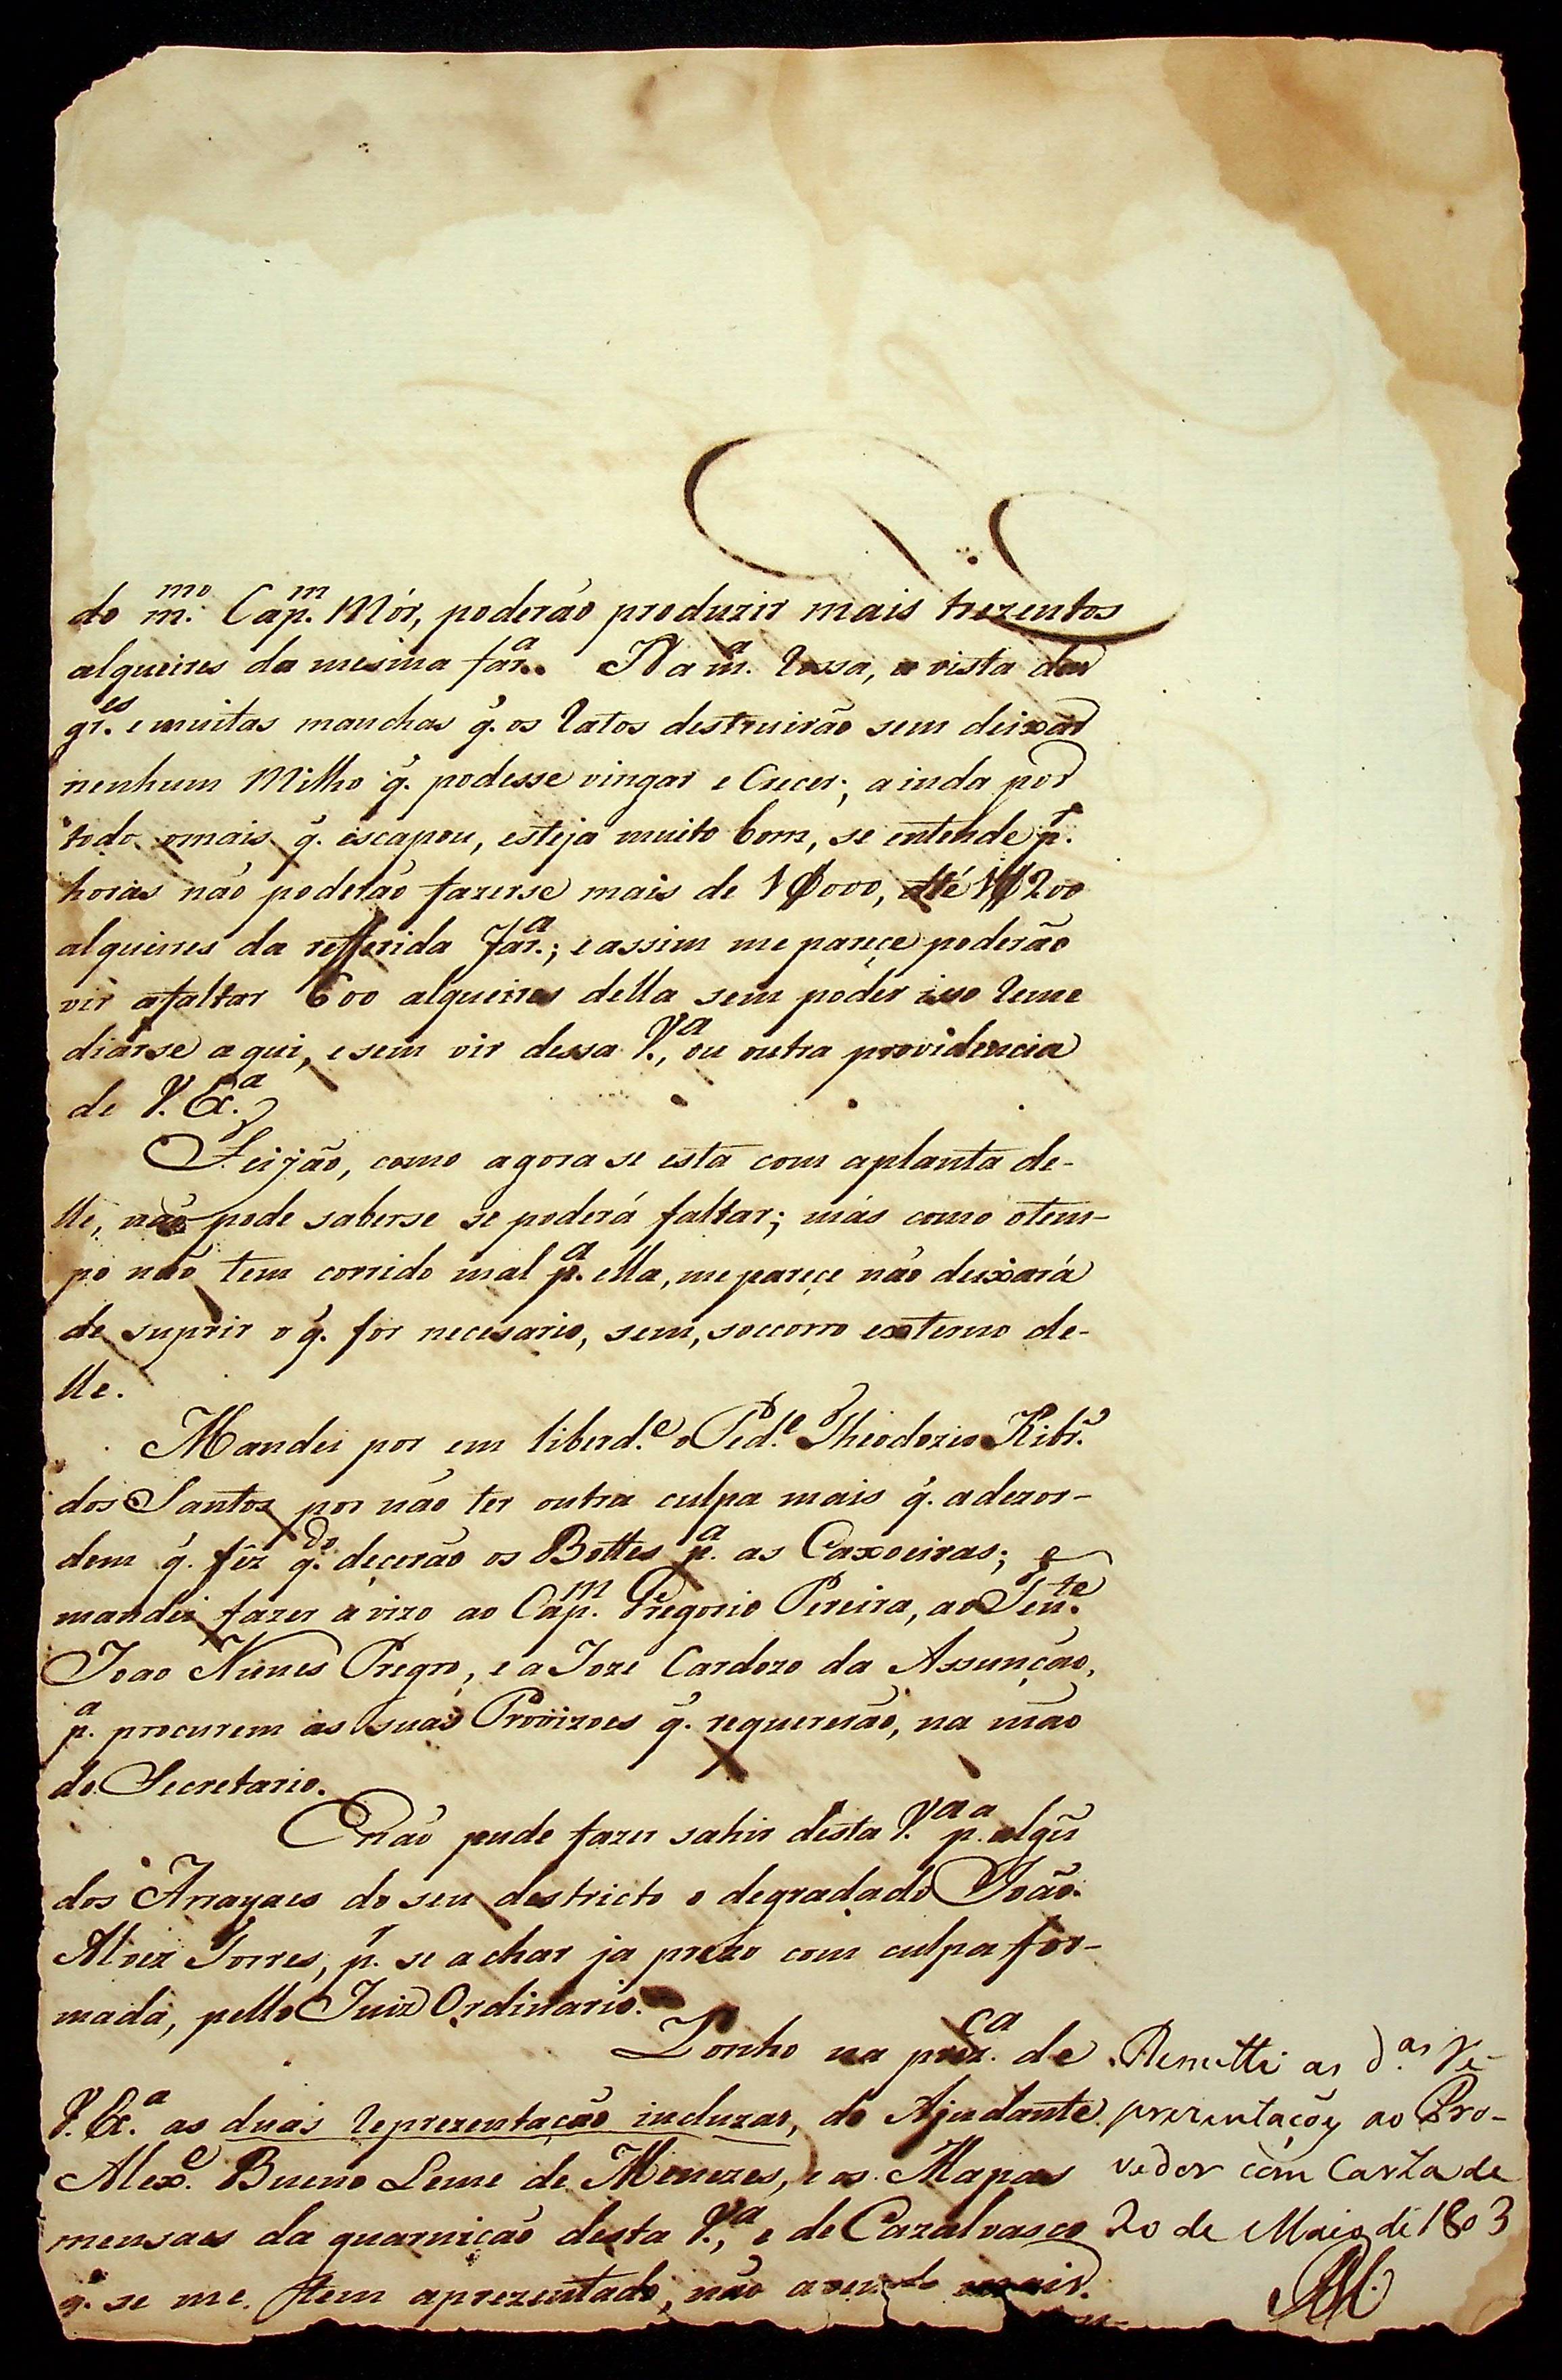 do m.mo Cap.m Mór, poderáo produzir mais trezentos
alqueires da mesma far.a Na m.a Rossa, a vista das
gr.es e muitas manchas q̃. os Ratos destruirão sem deixar
nenhum Milho q̃. podesse vingar e Crecer; ainda por
todo omais q̃. iscapou, esteja muito bom, se entende p.r
horas náo poderáo fazerse mais de 1$000, até 1$200
alqueires da refferida Far.a; e assim me pareçe poderão
vir afaltar 600 alqueires della sem poder isso Reme
diarse aqui, e sem vir dessa V.a, ou outra providencia
de V. Ex.a
Feijão, como agora se está com aplanta de-
lle, náo pode saberse se poderá faltar; más como otem-
po náo tem corrido mal p.a ella, me pareçe náo deixará
de suprir o q̃. for necesario, sem, soccorro externo de-
lle.
Mandei por em liberd.e o Ped.e Theodozio Ribr.o
dos Santos por náo ter outra culpa mais q̃. adezor-
dem q̃. fêz q.do deçerão os Bottes p.a as Caxoeiras; e
mandei fazer avizo ao Cap.m Gregorio Pereira, ao Ten.te
Joao Nunes Pregro, e a Joze Cardozo da Assunção,
p.a procurem as suas Provizoes q̃. requererão, na mão
do Secretario.
Não pude fazer sahir desta V.a p.a algũ
dos Arrayaes do seu destricto o degradado João
Alvez Torres, p.r se achar ja prezo com culpa for-
mada, pello Juiz Ordinario.
Ponho na prez.ca de
V. Ex.a as duas Reprezentação incluzas, do Ajudante
Alex.e Bueno Leme de Menezes, e os Mapas
mensaes da guarnição desta V.a, e de Cazalvasco
q̃. se me tem aprezentado, não avendo mais.
Remetti as d.as Re-
prezentações ao Pro-
vedor com Carta de
20 de Maio de 1803